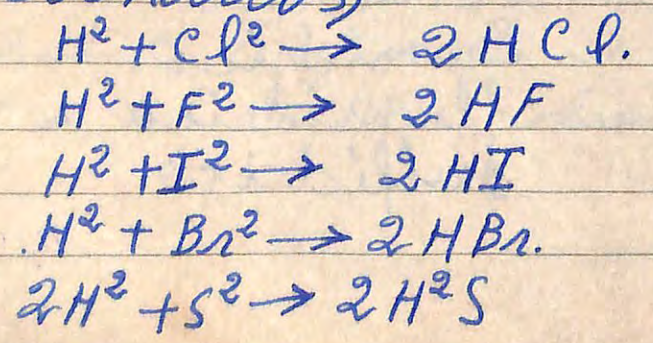 H² + Cl² → 2HCl.
H² + F² → 2HF
H² + I² → 2HI
H² + Br² → 2HBr.
2H² + S² → 2H²S